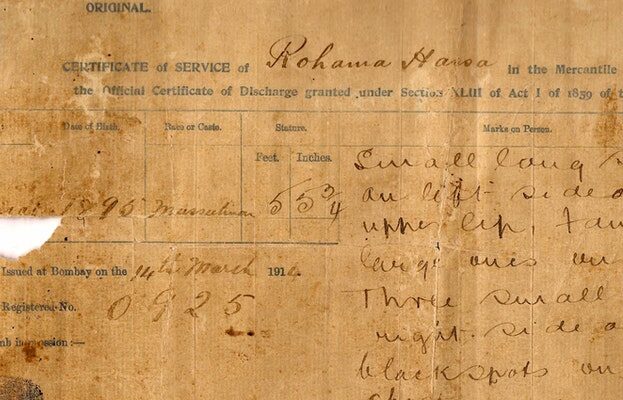 ORIGINAL.
CERTIFICATE of SERVICE of Rohama Hansa in the Mercantile
the Official Certificate of Discharge granted under Section XLIII of Act I of 1859 of t
Date of Birth. Race or Caste. Stature. Marks on Person.
Feet. Inches.
1895 Mussulman 5 5 3/4
Small long
on left side o
upper lip,
large ones on
Three small
right side o
black spots on
Issued at Bombay on the 14th March 191
Registered No. 0925
mb impression :—